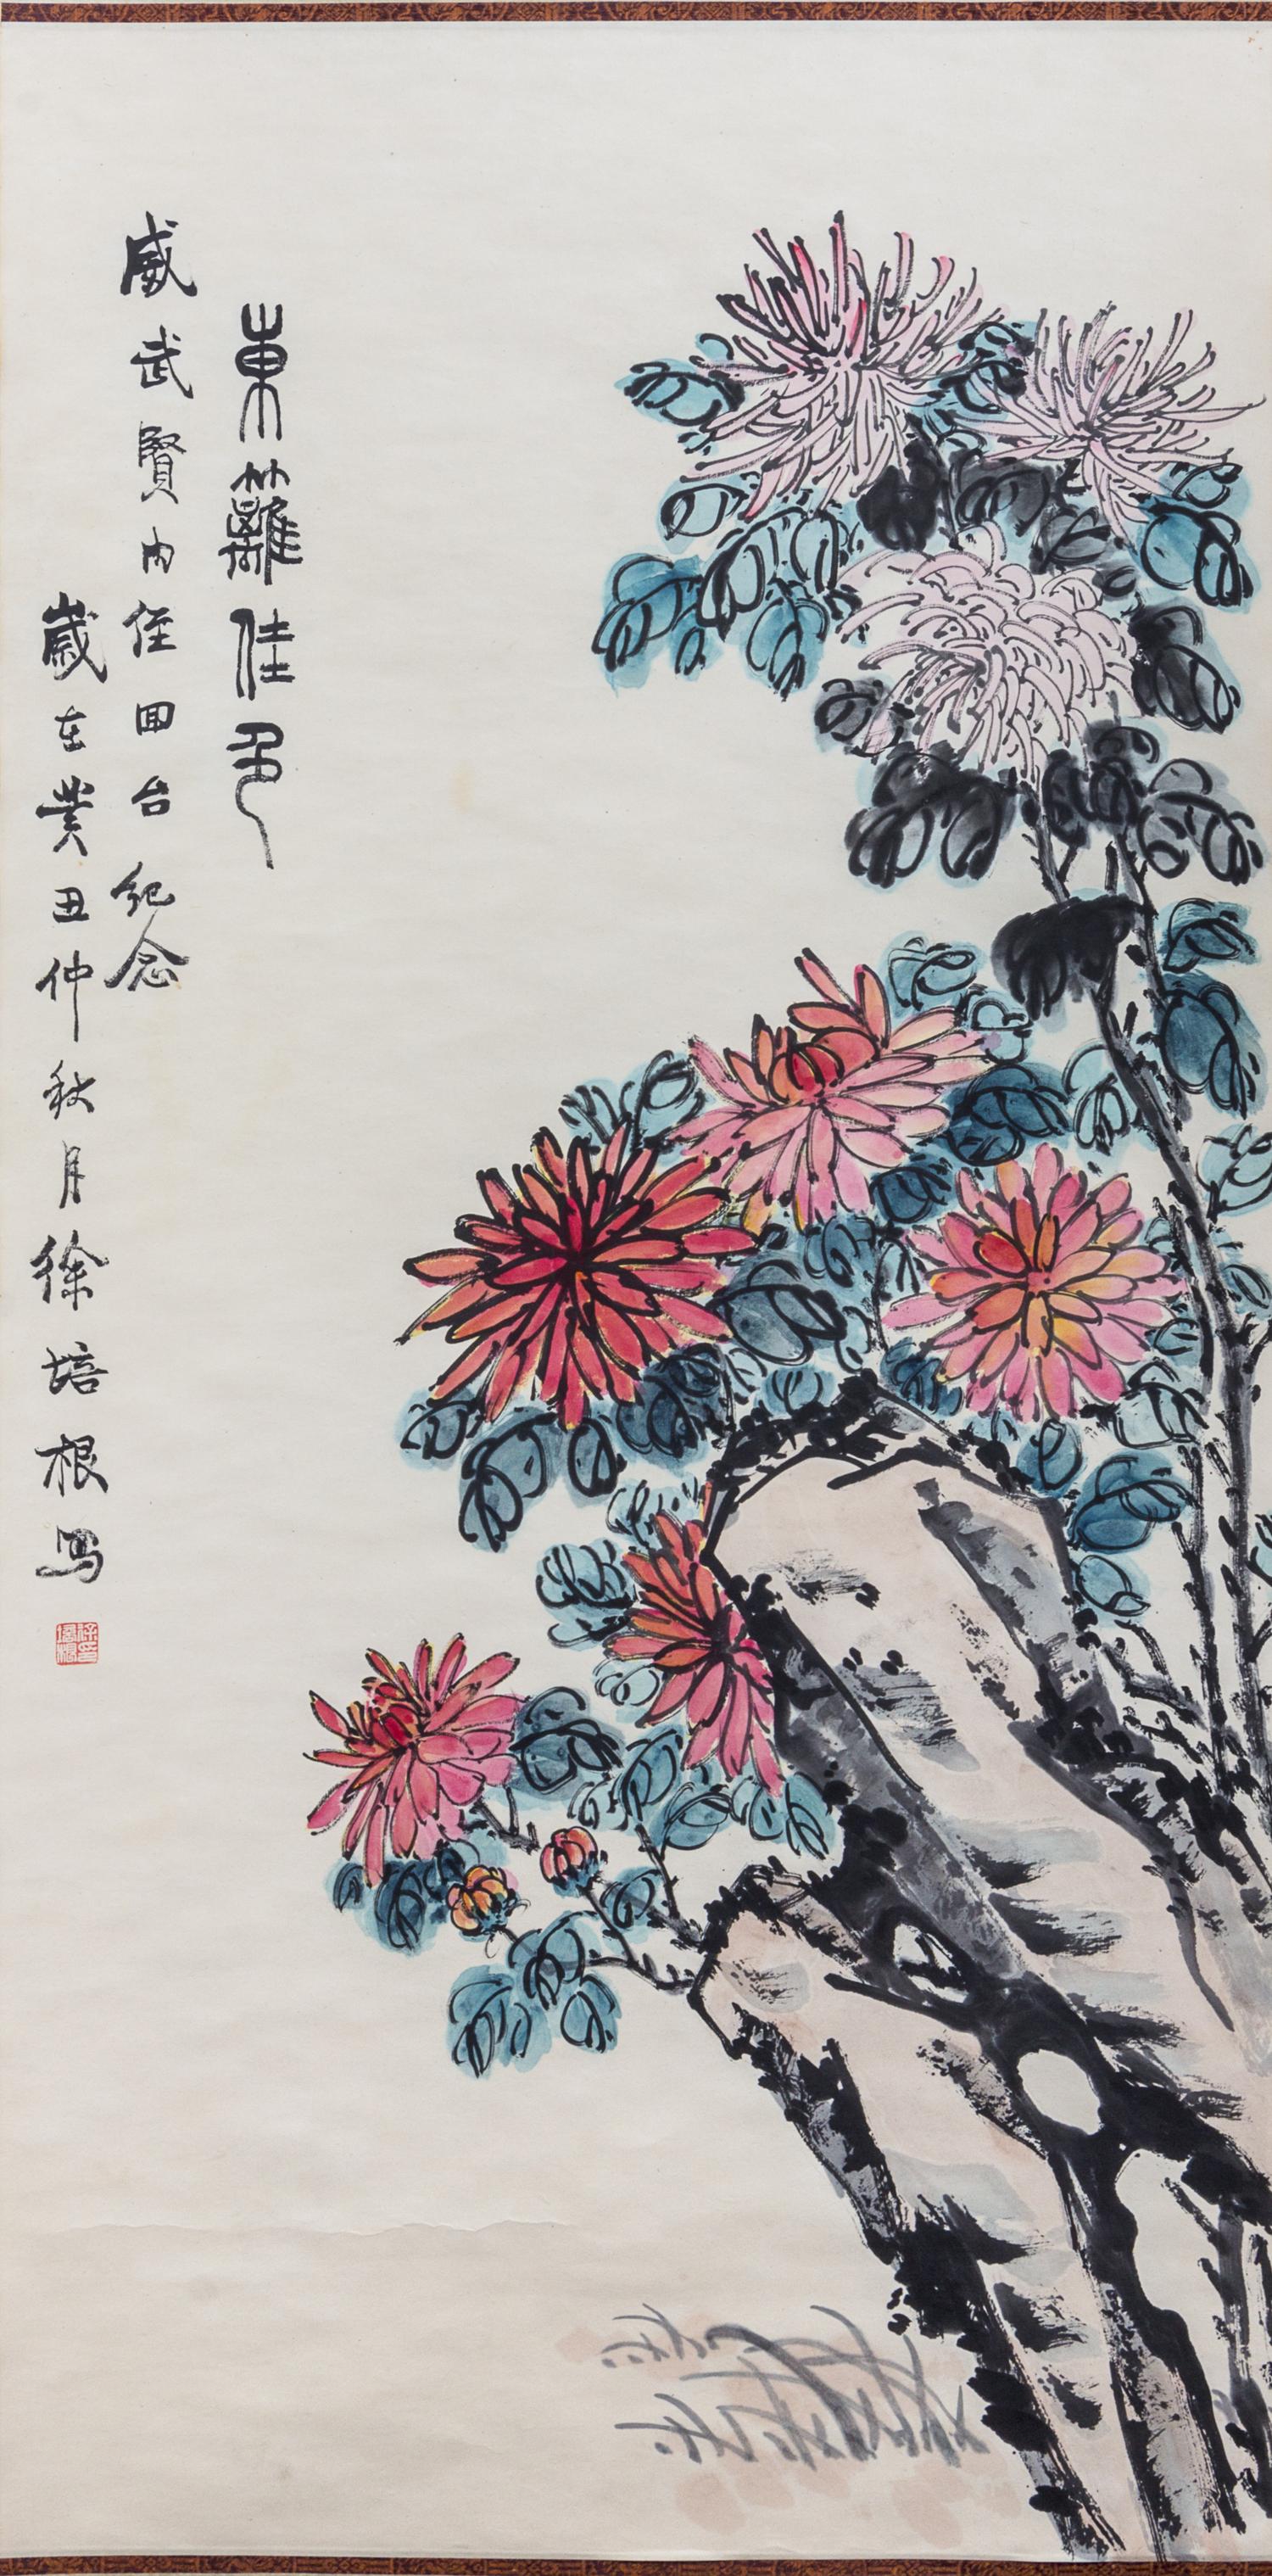 東籬佳色
威武賢內侄回台紀念
歲在癸丑仲秋月徐培根寫